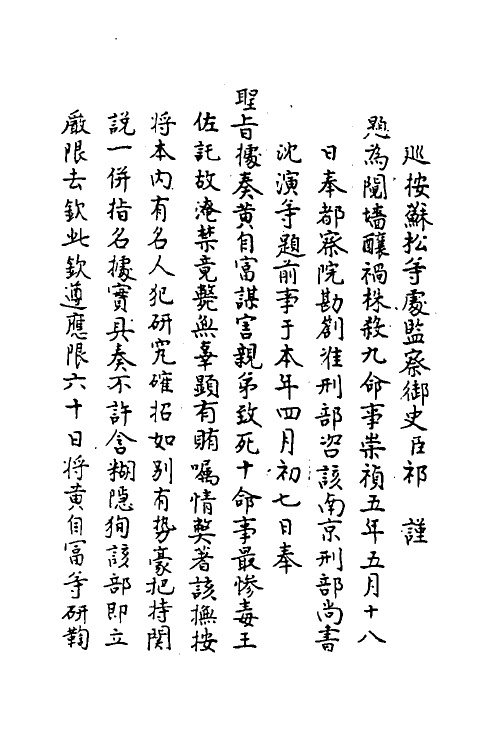 巡按蘇松等處監察御史臣祁　謹
題為䦧墻釀禍株殺九命事崇禎五年五月十八
日奉都察院勘劄准刑部咨該南京刑部尚書
沈演等題前事于本年四月初七日奉
聖旨據奏黄自富謀害親弟致死十命事最慘毒王
佐託故淹禁竟斃無辜顯有賄囑情獘著該撫按
将本内有名人犯研究確招如别有势豪把持関
說一併指名據實具奏不許含糊隱狥該部即立
嚴限去欽此欽遵應限六十日将黄自冨等研鞫